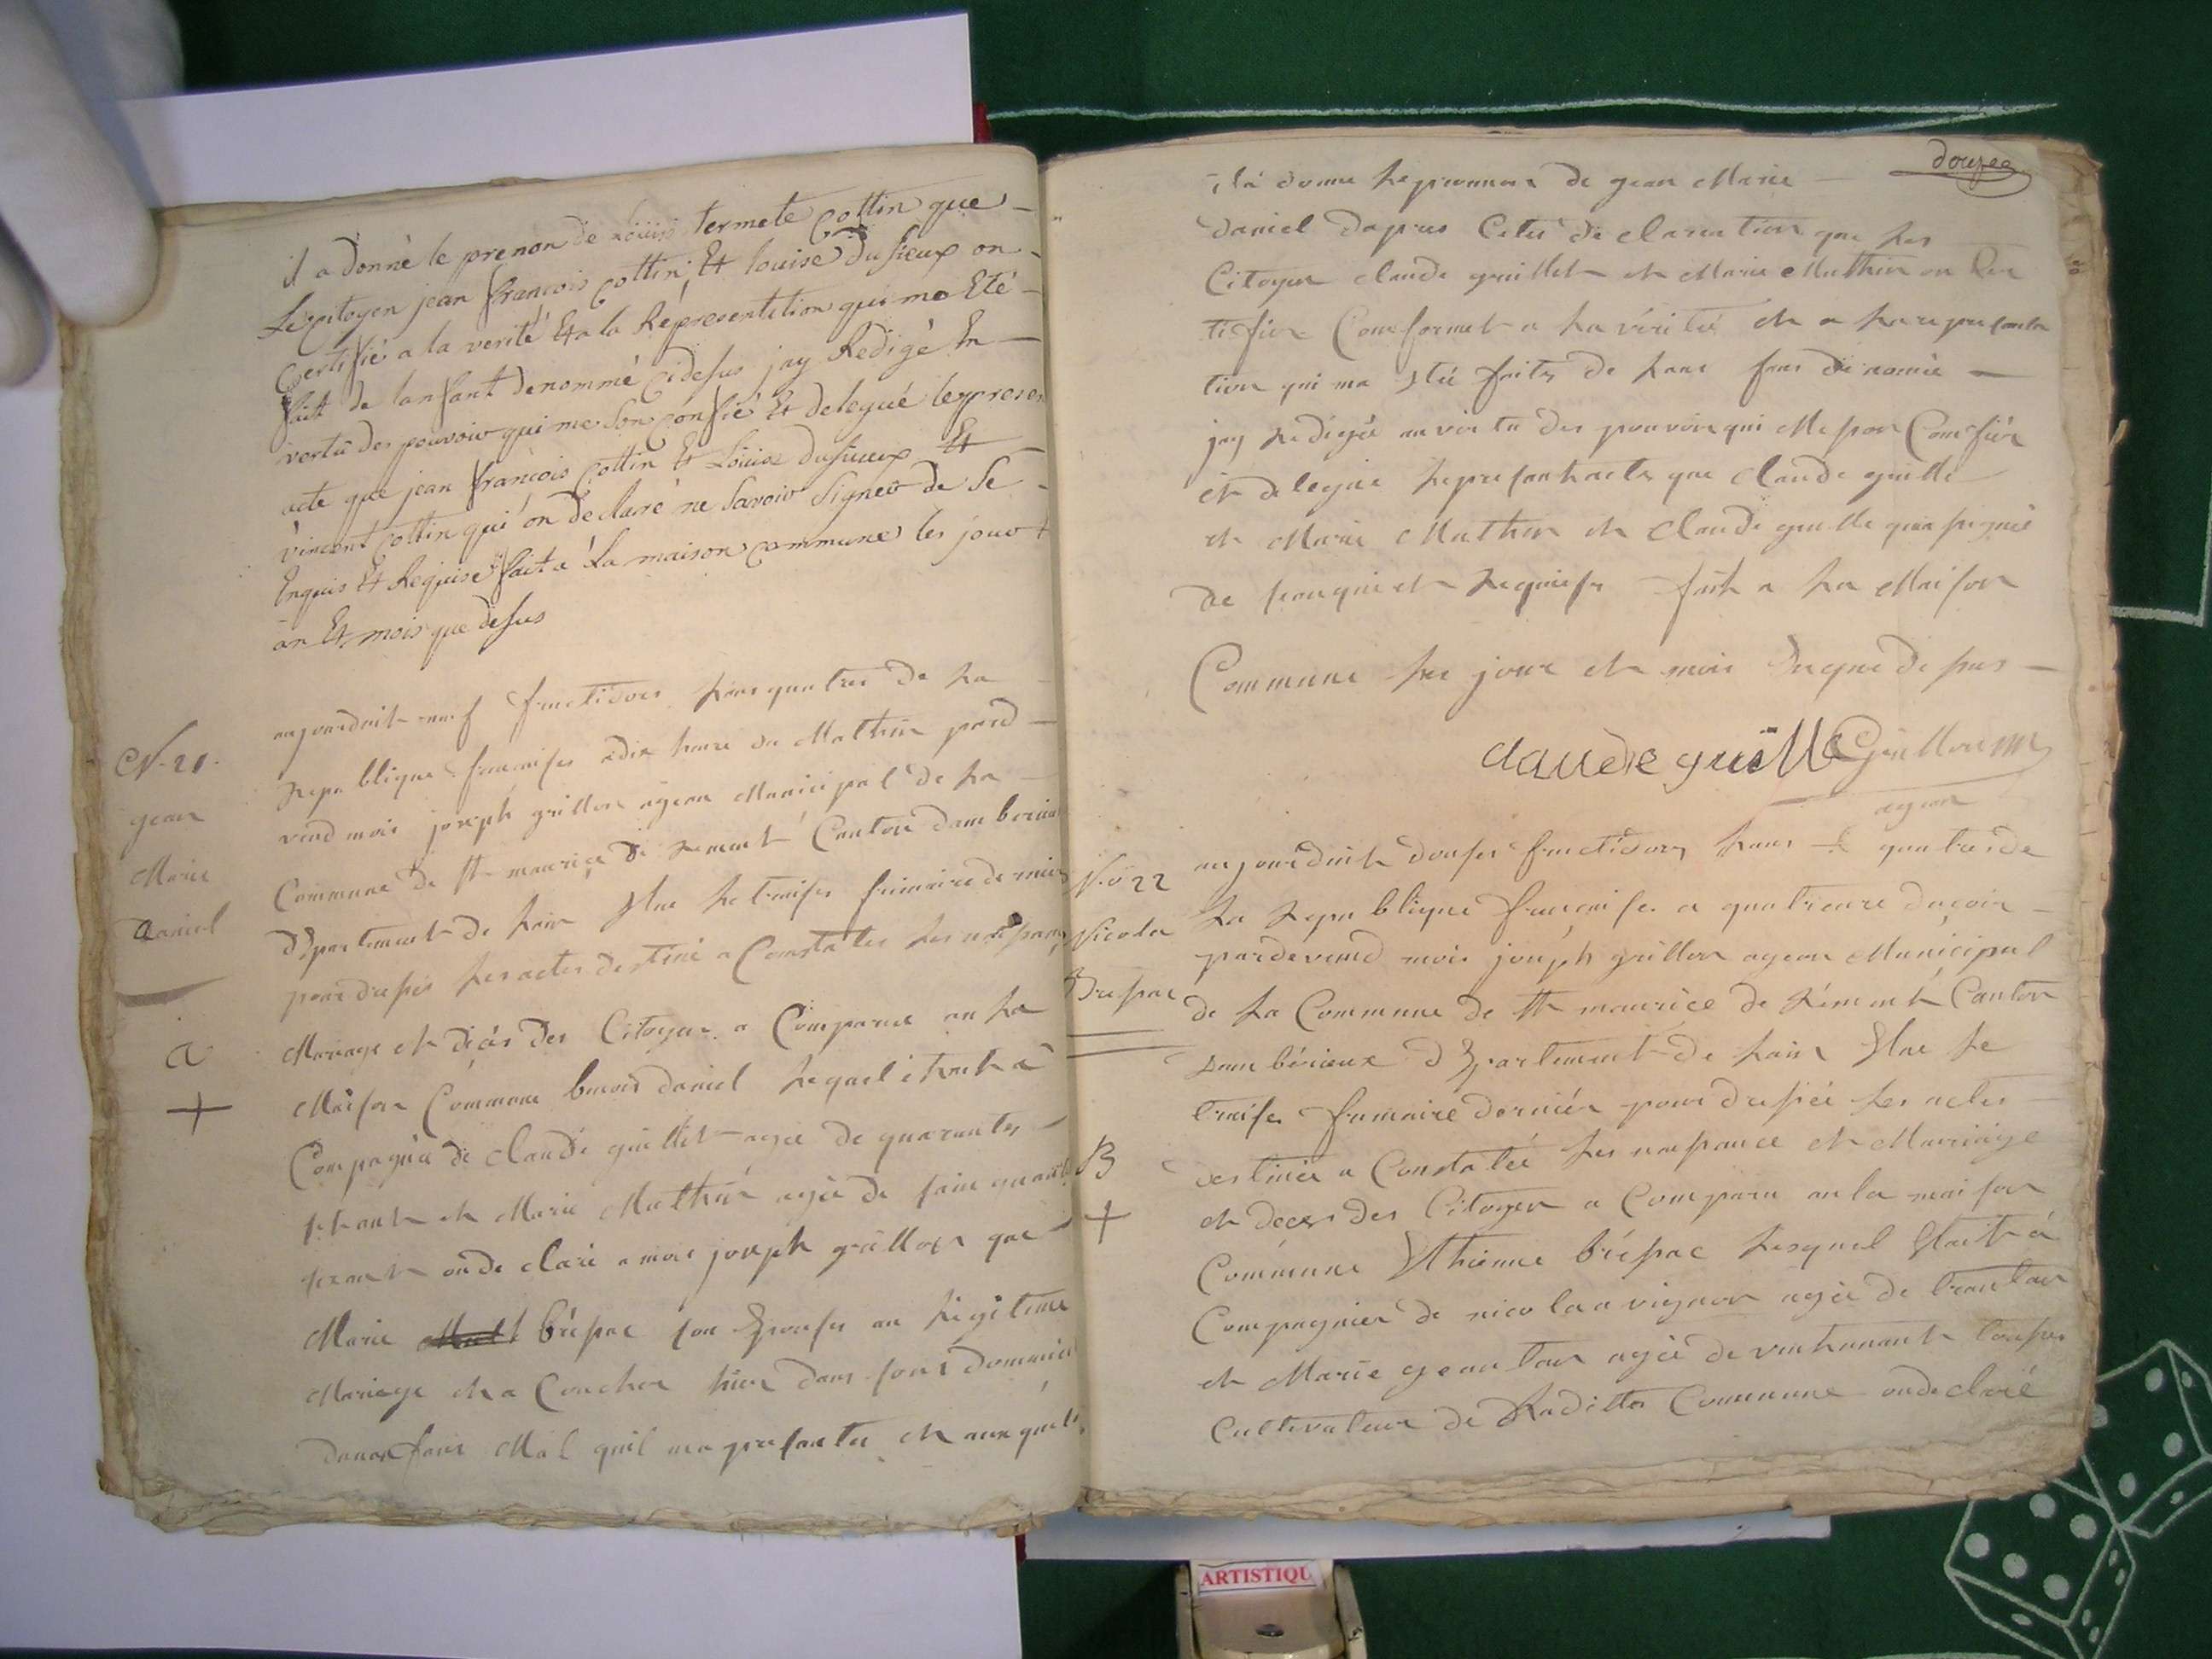 il a donné le prenon de Louis termete Cottin que
Le citoyen jean francois Cottin Et louise dusieux on
Certifié a la verité Et a la Representetion qui ma Eté
fait de lanfant denommé cidesus jay Redigé En
vertû des pouvoir qui me son confié Et delegué le presen
acte que jean francois Cottin Et Louise dusieux Et
vincent Cottin qui on declaré ne Savoir Signer de Se
Enquis Et Requise fait a La maison commune les jour +
an Et mois que desus
N. 21.
gean
Marie
daniel
a
+
aujourduit neuf fructidore lans quatres de la
Republique francaises a dix heure du Mathin pard
vend mois joseph guillon agean Municipal de la
Commune de St maurice de Rement Canton dambericux
Département de lain Elue le traises frimaire dernier
pour dresés les actes destiné a Constater les nesance
Mariage et décés des Citoyen a Comparue an la
Maison Commune benois daniel lequel etoit a
Compagnié de claude guillet agée de quarantes
et Marie Mathin agée de
onde claré a moi joseph guillon que
Marie brésac son Epouses an legitime
Mariage et a Coucher hier dans sons domicil
danonfans Mâl quil ma presantes et auxquel
douzee
il à donne le prennon de gean Marie
daniel dapres Cetes de claration que les
Citoyen claude guillet et Marie Mathin on Cer
tifier Conformet a la vérité et a la represanta
tion qui ma Eté faites de lans fans dénomé
jay redigée an vertu des pouvoir qui Me son Confiér
et delegué le presant actes que claude guille
et Marie Mathin et claude guille qui a signié
de sanquiet requise fait a la Maison
Commune les jour et mois dique de sus
claude guille Guillon
agean
N.o 22
Nicolas
Bresac
B
+
aujourduit douses fructidore lans quatres de
La Republique francaises a quatreure dusoir
pardevend mois joseph guillon agean Municipal
de la Commune de St maurice de Rément Canton
dambérieux Département de lain Elue le
traises frimaire dernier pour dressée les actes
destinée a Constatée les naissance et Marriage
et decex des Citoyen a Comparu an la maison
Commune Ethienne brésac lesquel Etait a
Compagniee de nicolas vignon agée de trantan
et Marie geantan agée de
Cultivateur de Ladittes Commune onde claré